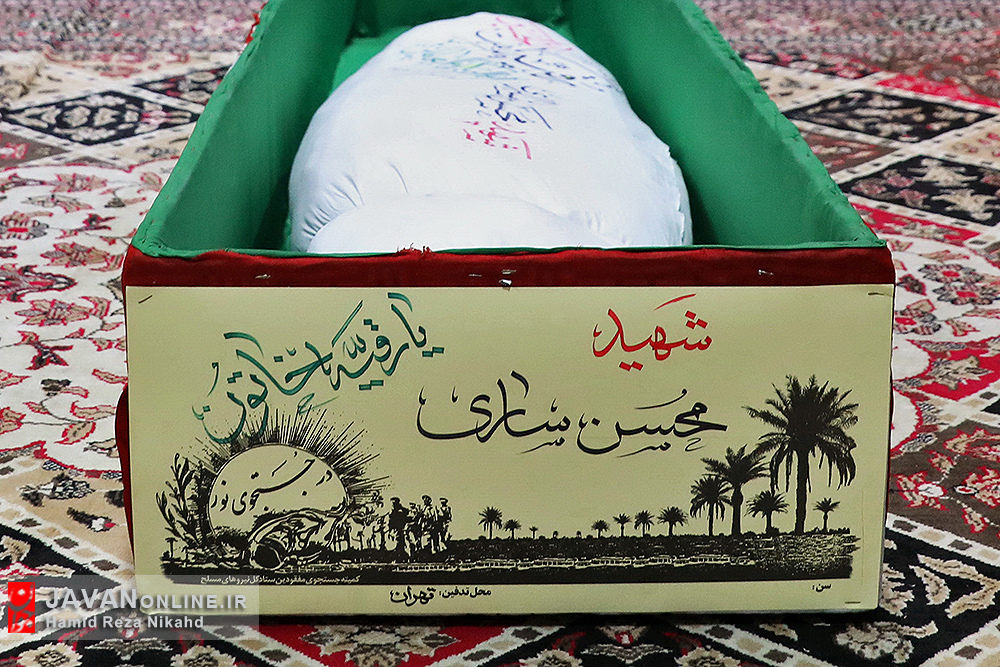 شهید
محسن ساری
یا رقیه خاتون
در جستجوی نور
کمیته جستجوی مفقودین ستاد کل نیروهای مسلح
محل تدفین: تهران
سن:
JAVANONLINE.IR
Hamid Reza Nikahd